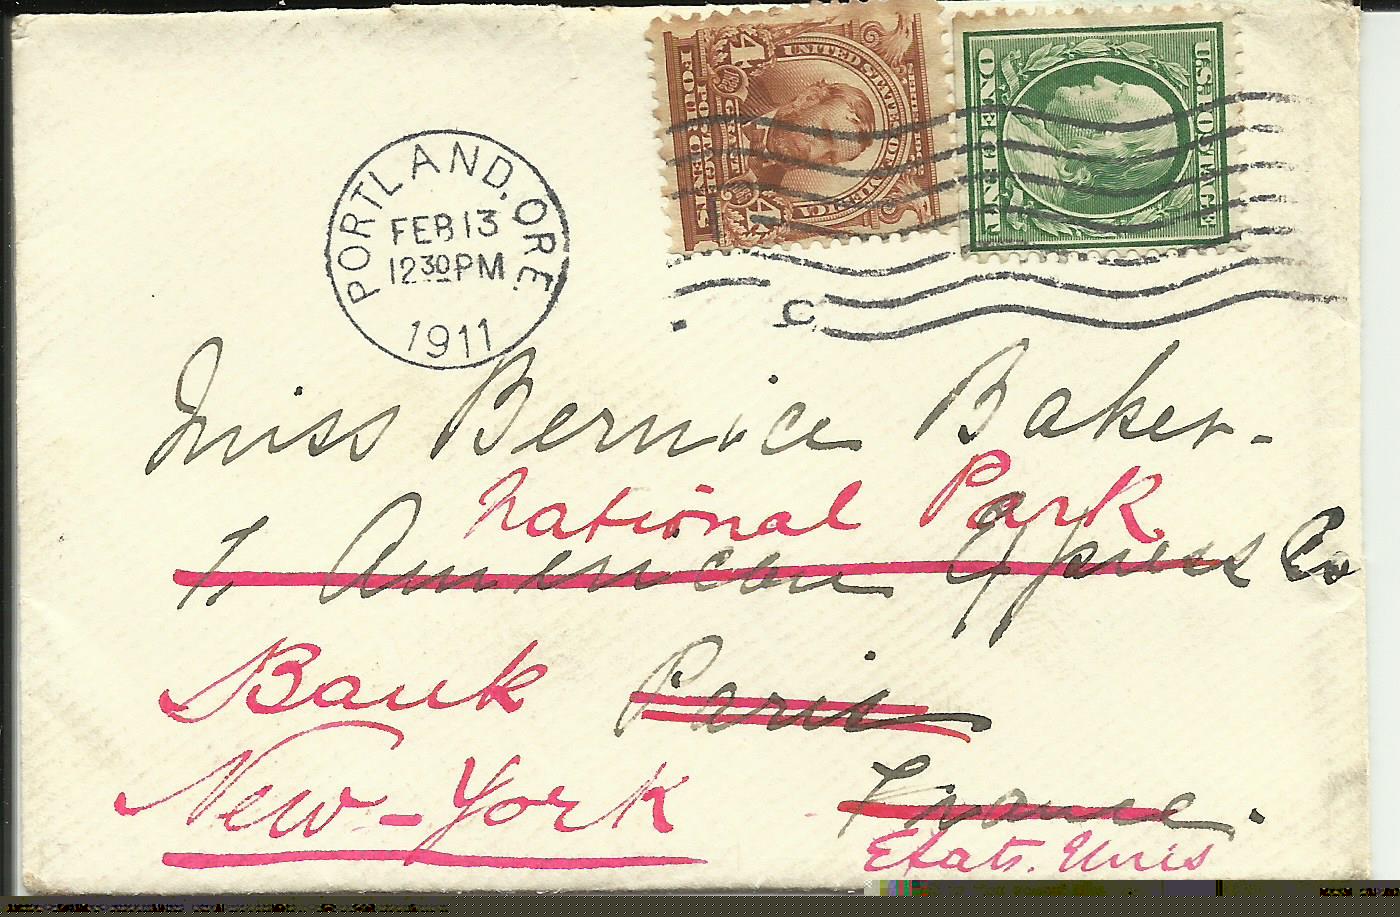 PORTLAND, ORE.
FEB 13
12 30 PM
1911
4 4
FOUR CENTS
POSTAGE
GRANT
UNITED STATES OF AMERICA
SERIES 1902
U.S. POSTAGE
ONE CENT
C
Miss Bernice Baker-
National Park
American Express Co
Bank Paris
New-York France.
Etats. Unis